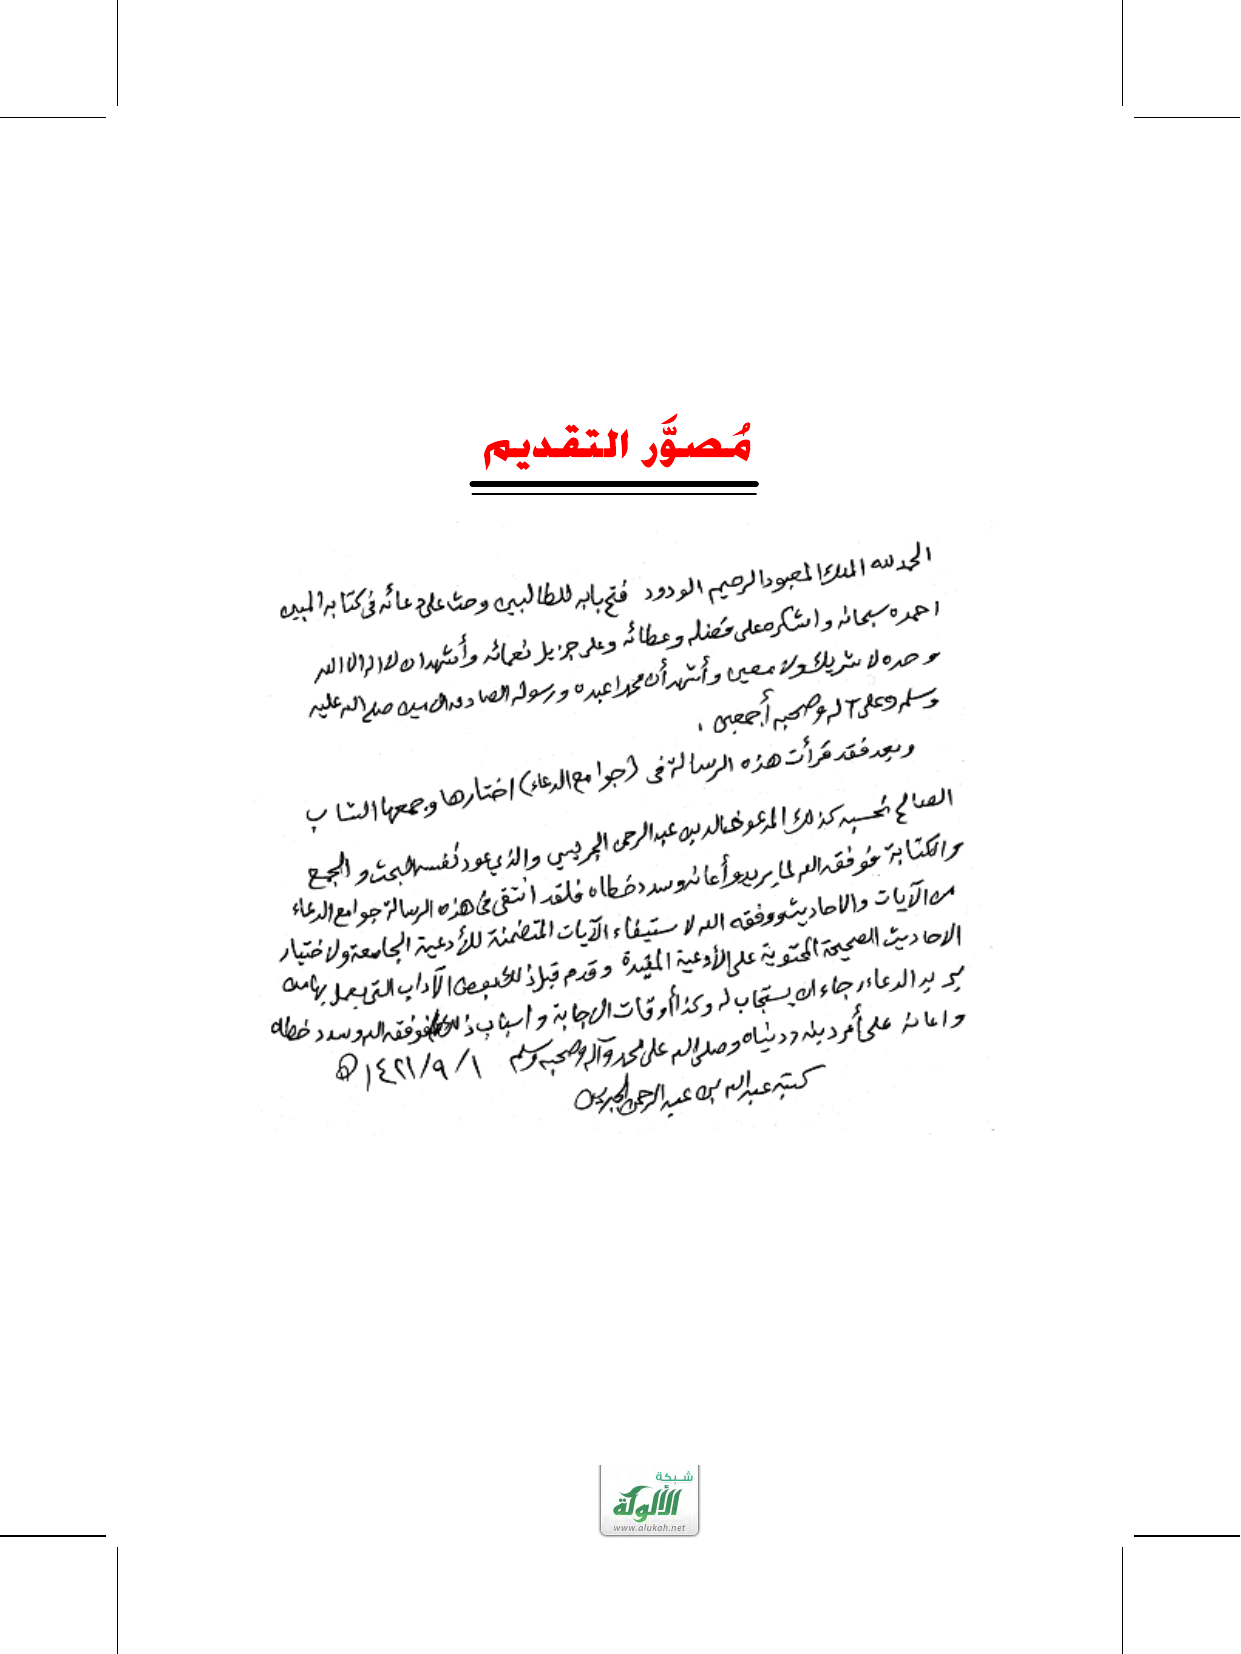 مُصوَّر التقديم
الحمد لله الملك المعبود الرحيم الودود فتح بابه للطالبين وحث على دعائه في كتابه المبين
احمده سبحانه واشكره على فضله وعطائه وعلى جزيل نعمائه وأشهد ان لا اله الا الله
وحده لا شريك ولا معين وأشهد أن محمدا عبده ورسوله الصادق الامين صلى الله عليه
وسلم وعلى آله وصحبه أجمعين .
وبعد فقد قرأت هذه الرسالة في (جوامع الدعاء) اختارها وجمعها الشاب
الصالح نحسبه كذلك المدعو خالد بن عبد الرحمن الجريسي والذي عود نفسه البحث والجمع
والكتابة فوفقه الله لما يريد وأعانه وسدد خطاه فلقد انتقى في هذه الرسالة جوامع الدعاء
من الآيات والاحاديث ووفقه الله لاستيفاء الآيات المتضمنة للأدعية الجامعة ولاختيار
الاحاديث الصحيحة المحتوية على الأدعية المفيدة وقدم قبل ذلك بعض الآداب التي يعمل بها من
يريد الدعاء رجاء ان يستجاب له وكذا أوقات الاجابة واسباب ذلك فوفقه الله وسدد خطاه
واعانه على أمر دينه ودنياه وصلى الله على محمد وآله وصحبه وسلم ١/٩/١٤٢١هـ
كتبه عبد الله بن عبد الرحمن الجبرين
شبكة
الألوكة
www.alukah.net